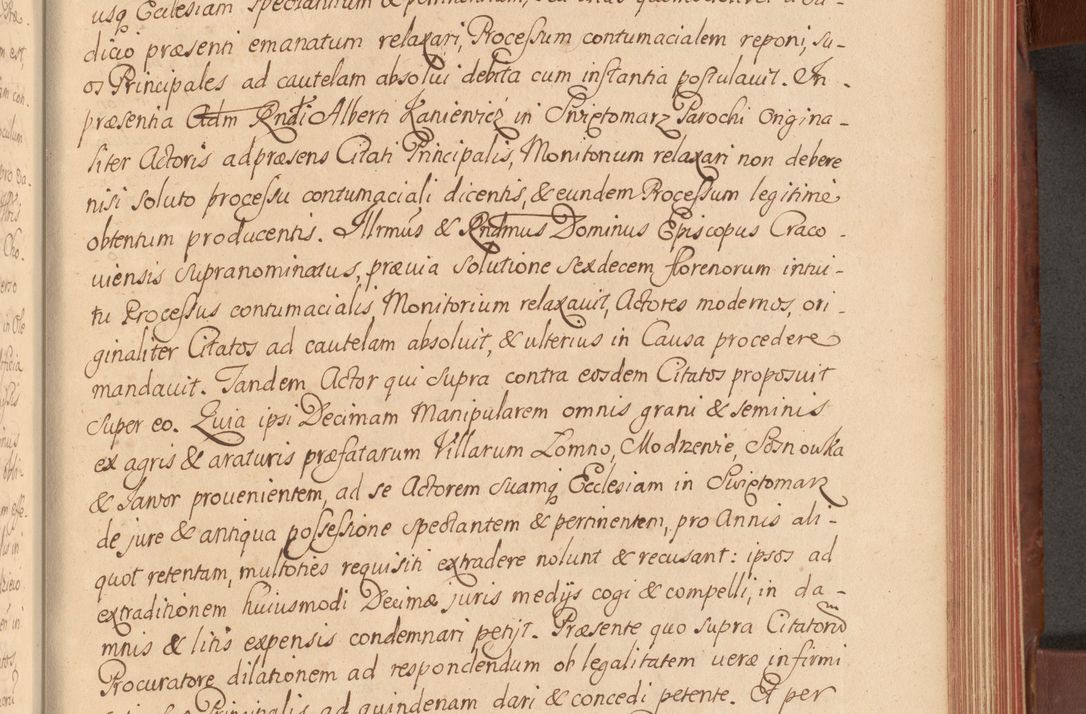 usq Ecclesiam spectantium & pertinentium,
dicio præsenti emanatum relaxari, Processum contumacialem reponi, su-
os Principales ad cautelam absolui debita cum instantia postulauit. In
præsentia Adm Rndi Alberti Kaniewicz in Swiętomarz Parochi Origina-
liter Actoris adpræsens Citati Principalis, Monitorium relaxari non debere
nisi soluto processu contumaciali dicentis, & eundem Processum legitime
obtentum producentis. Illrmus & Rndmus Dominus Episcopus Craco-
uiensis supranominatus, præuia solutione sexdecem florenorum intui-
tu Processus contumacialis, Monitorium relaxauit, Actores modernos, ori-
ginaliter Citatos ad cautelam absoluit, & ulterius in Causa procedere
mandauit. Tandem Actor qui supra contra eosdem Citatos proposuit
super eo. Quia ipsi Decimam Manipularem omnis grani & seminis
ex agris & araturis præfatarum Villarum Lomno, Modrzewie, Sosnowka
& Jawor prouenientem, ad se Actorem suamq Ecclesiam in Swiętomarz
de jure & antiqua possessione spectantem & pertinentem, pro Annis ali-
quot retentam, multoties requisiti extradere nolunt & recusant: ipsos ad
extraditionem huiusmodi Decimæ juris medijs cogi & compelli, in da-
mnis & litis expensis condemnari petijt. Præsente quo supra Citatorũ
Procuratore dilationem ad respondendum ob legalitatem veræ infirmi
Principalis ad quindenam dari & concedi petente. Et per